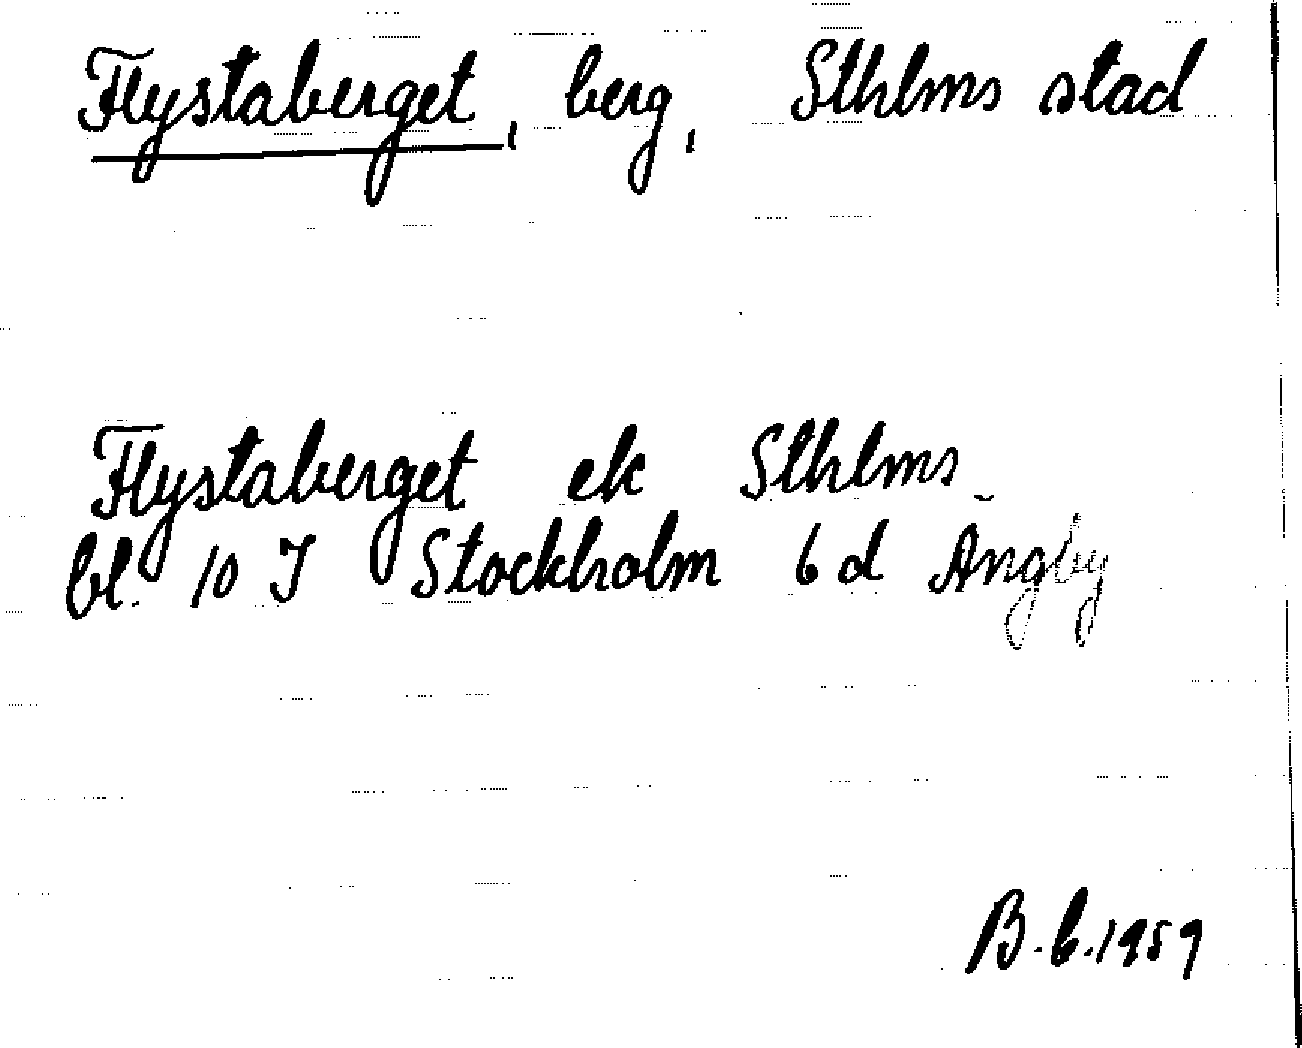 Flystaberget, berg, Sthlms stad
Flystaberget ek Sthlms
bl. 10 I Stockholm 6 d Ängby
B.b.1959